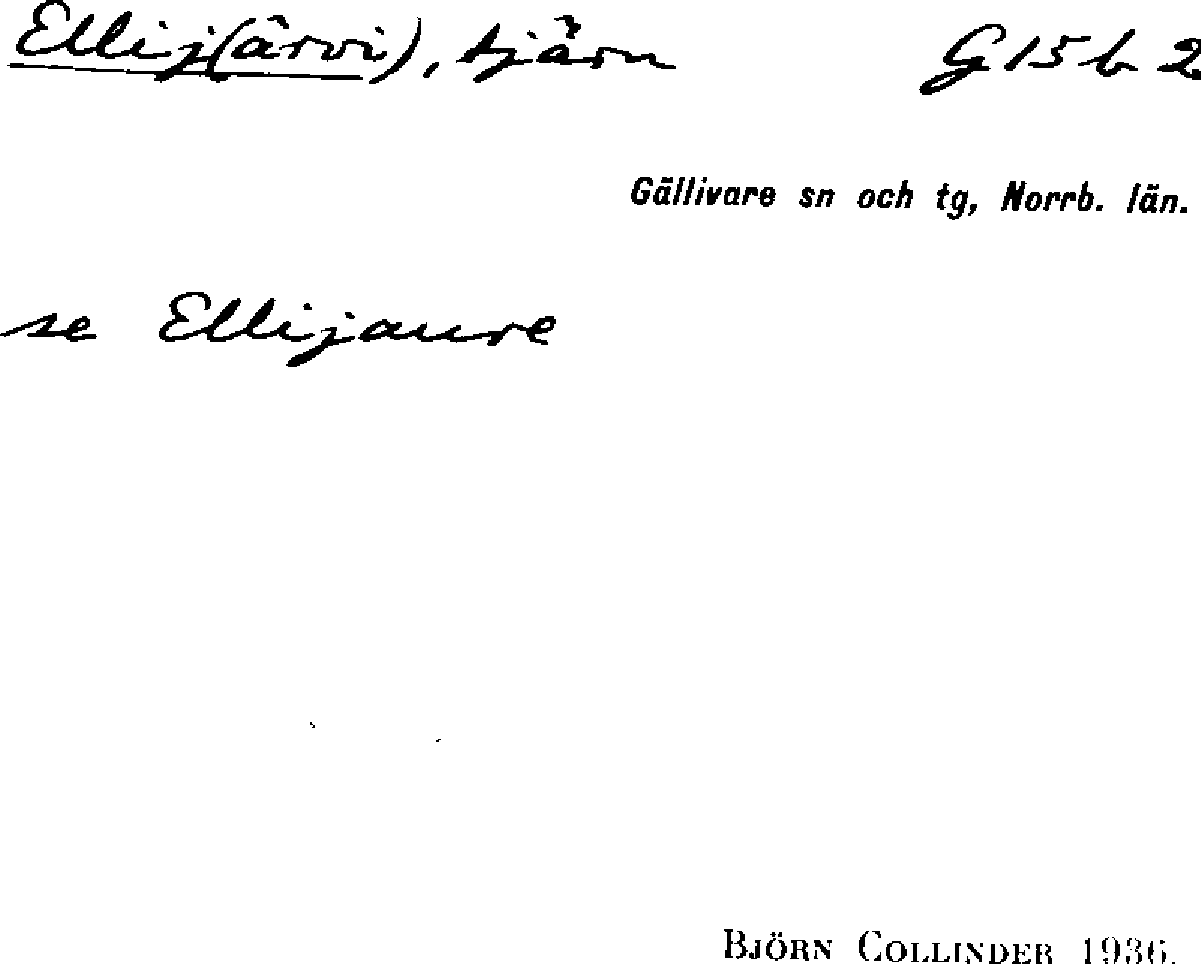 Ellij(ärvi), tjärn G15 b 2
Gällivare sn och tg, Norrb. län.
se Ellijaure
BJÖRN COLLINDER 1936.